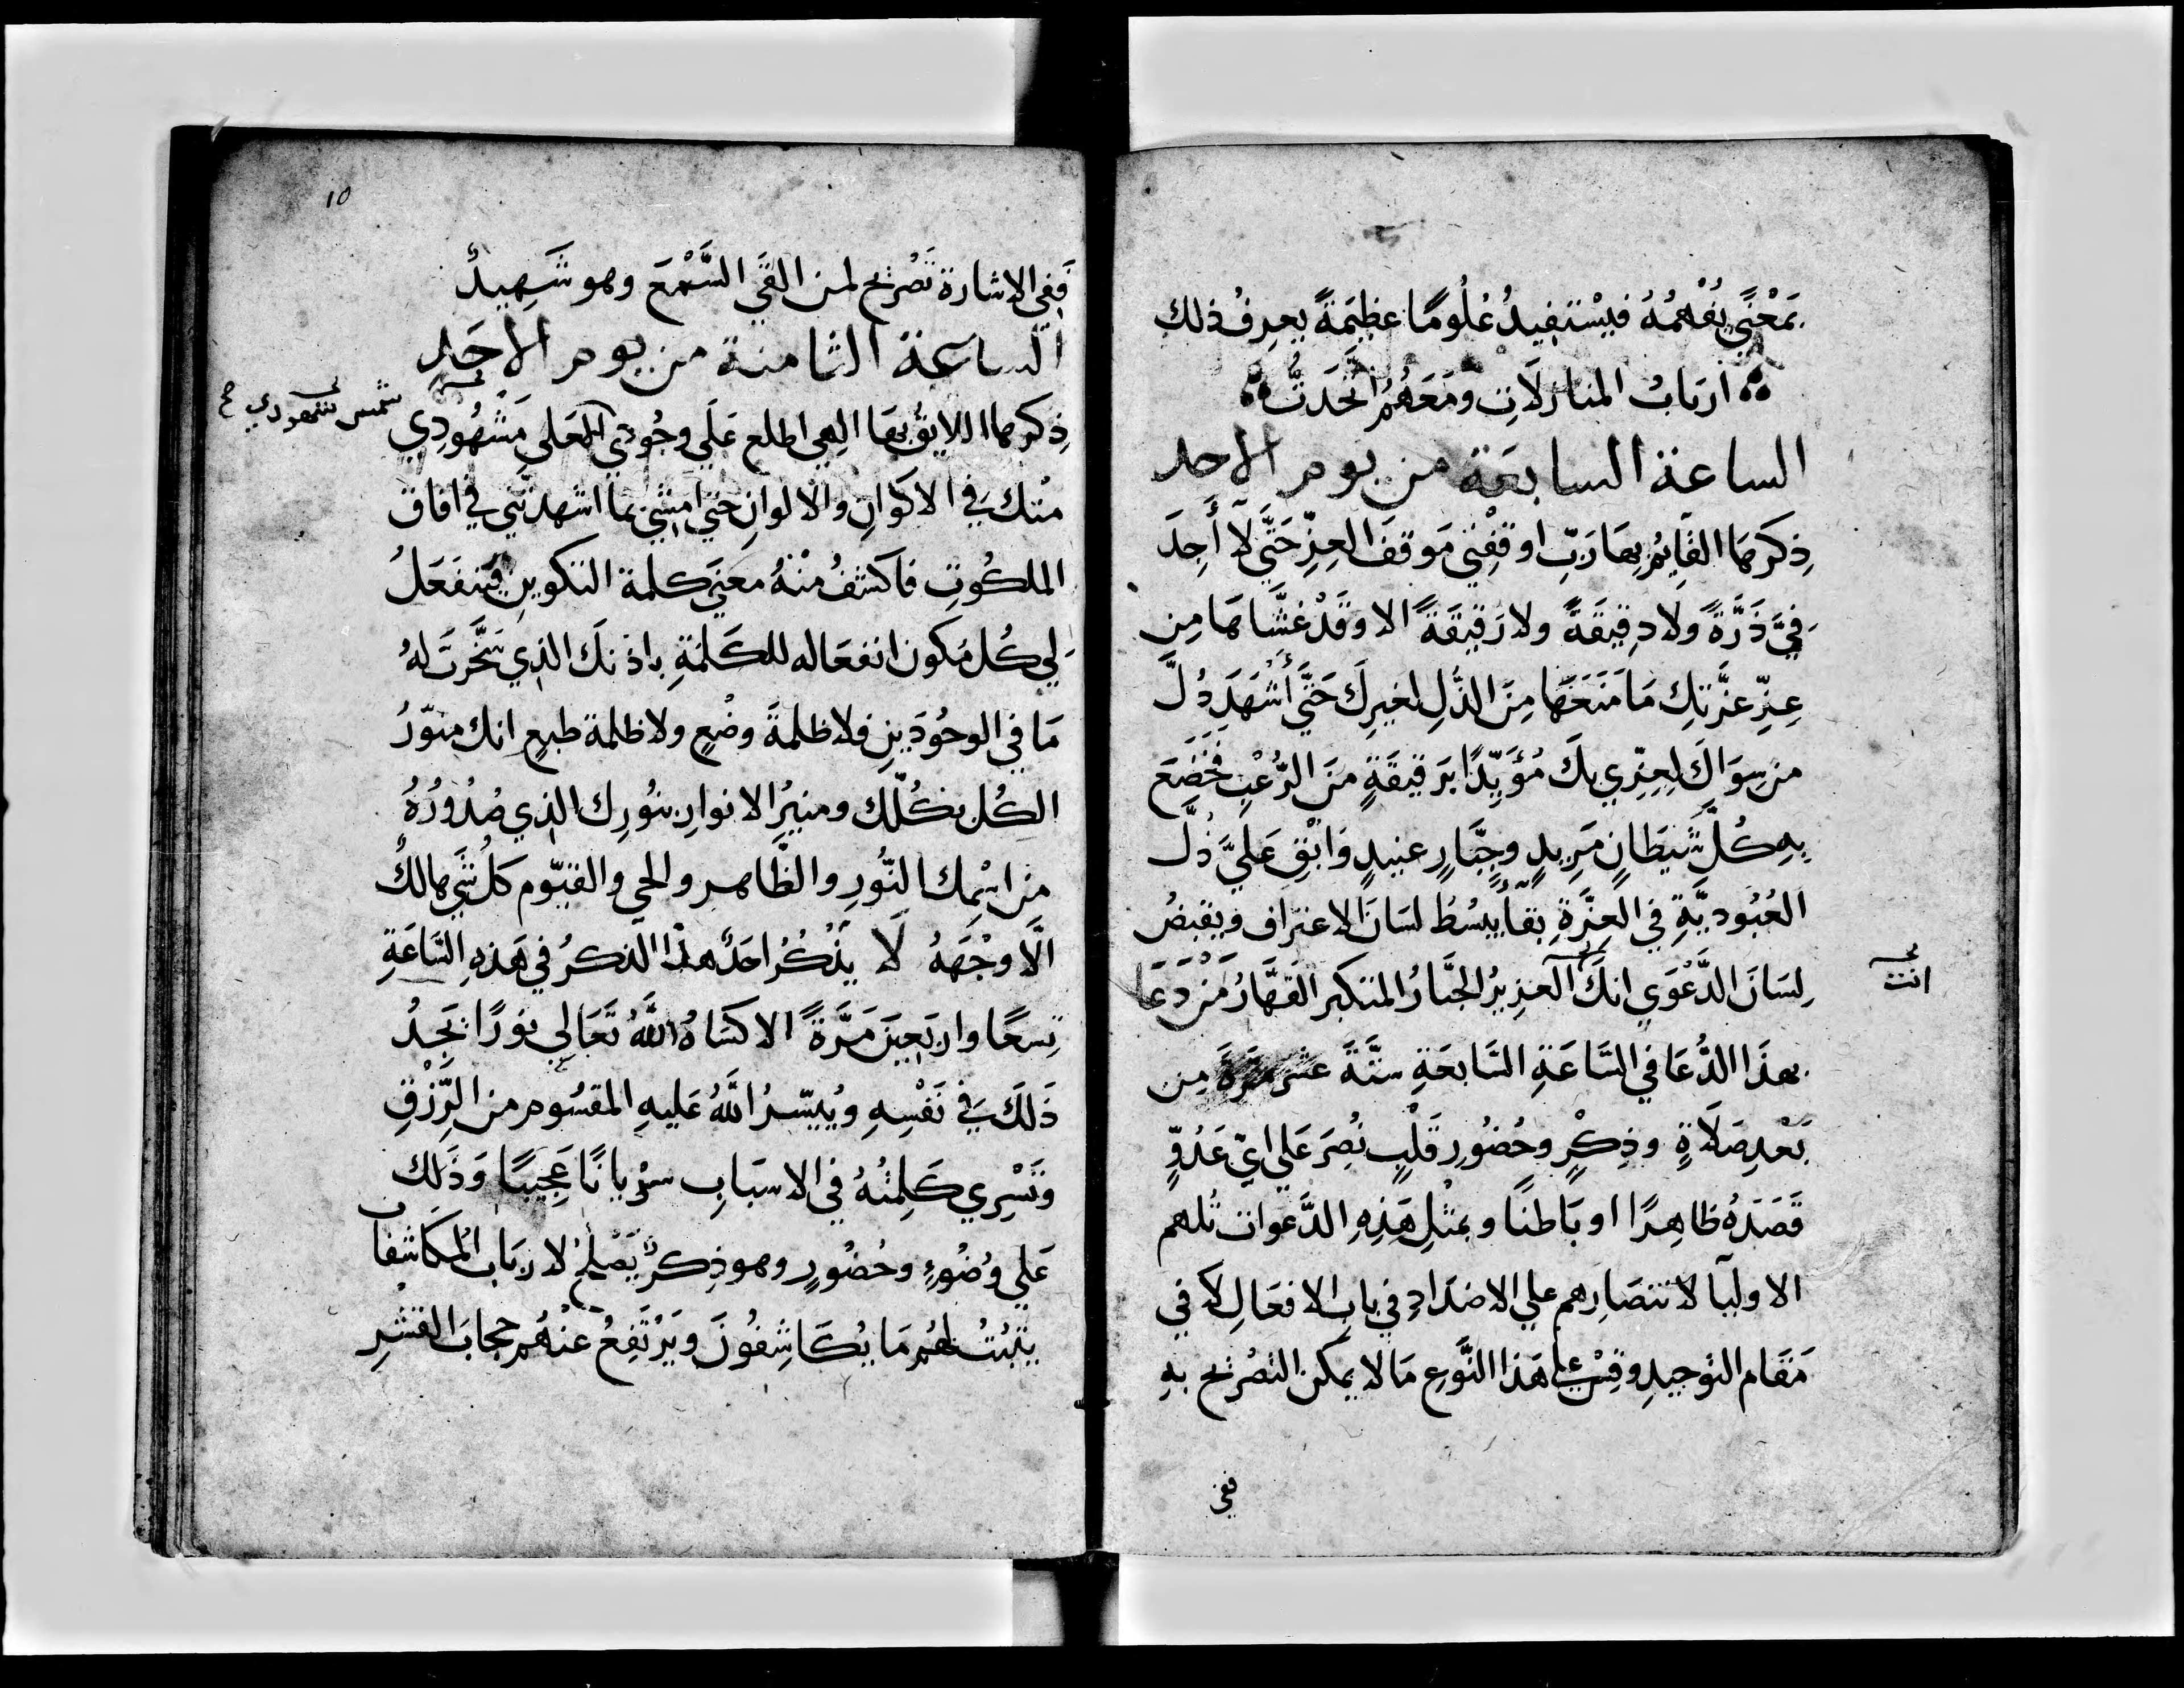 بمَعْنًى يُفْهَمُهُ فيَسْتفِيدُ عُلُومًا عظِيمَةً يعرِفُ ذلك
أربَابُ المنازلَاتِ ومَعَهُمُ اتَّحَدَتْ
الساعة السابعَة من يوم الاحد
ذِكرهَا القَايِمُ بهَا رَبِّ اوقفْنِي مَوقفَ العِزِّ حَتَّى لَا أَجِدَ
فِيَّ ذَرَّةً وَلا دِقيقَةً ولا رَقيقَةً الا وقَدْ غشَّاهَا مِن
عِزِّ عزَّتِكِ مَا مَنَعَهَا مِنَ الذُّلِ لغيرِكَ حَتَّى أَشْهَدَ ذُلَّ
من سِوَاكَ لِعِزِّي بِكَ مُؤَيّدًا بَرقيقَةٍ مِنَ الرُّعْبِ يَخْضَعَ
بِهِ كُلَّ شَيطَانٍ مَرِيدٍ وجبَّارٍ عنيدٍ وَابْقِ عَلَيَّ ذُلَّ
العُبُوديَّةِ في العِزَّةِ بقاً يَبسُطُ لسَانَ الاعتراف ويقبضُ
لِسَانَ الدَّعْوَي انكَ العزيزُ الجَبَّارُ المتكبر القَهَّارُ مَنْ دَعَا
انت
بهذَا الدُّعَا في السَّاعَةِ السَّابعَةِ ستَّةَ عشر مَرَّةً مِن
بَعْدِ صَلَاةٍ وذِكْرٍ وحُضُورِ قَلْبٍ نُصِرَ عَلي ايّ عَدُوٍّ
قَصَدَهُ ظاهِرًا او بَاطنًا وبمثْلِ هَذِهِ الدَّعوات تُلهم
الاوليآ لانتصَارِهم علي الاضدَادِ في باب الافعَالِ لا في
مَقَام التوحيدِ وفي هَذا النَّوعِ مَا لا يمكن التصْريح بهِ
ففي
10
فَفي الاشارة تَصْريح لمن القَي السَّمْعَ وهو شَهِيدٌ
السَاعَة الثامنة من يوم الاحَدِ
ذِكرهَا اللايقُ بهَا الهي اطلع عَلَي وجُودي مَشْهُودِي
شمس شهودي ح
منكَ في الاكوَانِ والالوانِ حتي امشي بمَا اشهدتني في افاق
الملكُوتِ فاكشفُ منْهُ معنَي كلمة التكوين فينفَعَلُ
لي كُل مكون انفعَاله للكَلمَةِ باذنكَ الذِي سَخَّرتَ لهُ
مَا في الوجُودَينِ فلا ظلمةً وضْعٍ ولا ظلمة طبعٍ انك منوّرُ
الكُل بكُلّك ومنيرُ الانوارِ بنورِك الذِي صُدُورُهُ
مِن اسْمِك النُّورِ والظَّاهر والحي والقيّوم كلُ شَي هالكٌ
الَّا وجْهَهُ لَا يَذْكُرُ احَدٌ هذا الذكرُ في هَذهِ السَّاعَةِ
تِسعًا واربَعينَ مَرَّةً الا كسَاهُ اللَّهُ تَعَالي نورًا يَجِدُ
ذَلكَ في نَفْسِهِ ويُيَسّرُ اللَّهُ عَليهِ المقسُوم من الرِّزْقِ
وتَسْرِي كَلِمتُهُ في الاسبَابِ سرْيانًا عَجِيبًا وَذَلِك
عَلي وُضُوءٍ وحُضُورٍ وهو ذِكرٌ يَصْلُحُ لاربَاب المُكاشفات
يثبُتُ لهُم مَا يُكَاشِفُونَ ويَرْتَفِعُ عنْهُم حجابَ القشْرِ